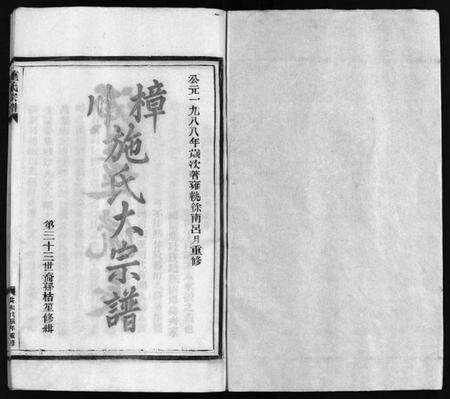 公元一九八八年歲次著雍執徐南呂月重修
樟川
施氏大宗譜
第三十三世裔孫桔笙修緝
施氏宗譜